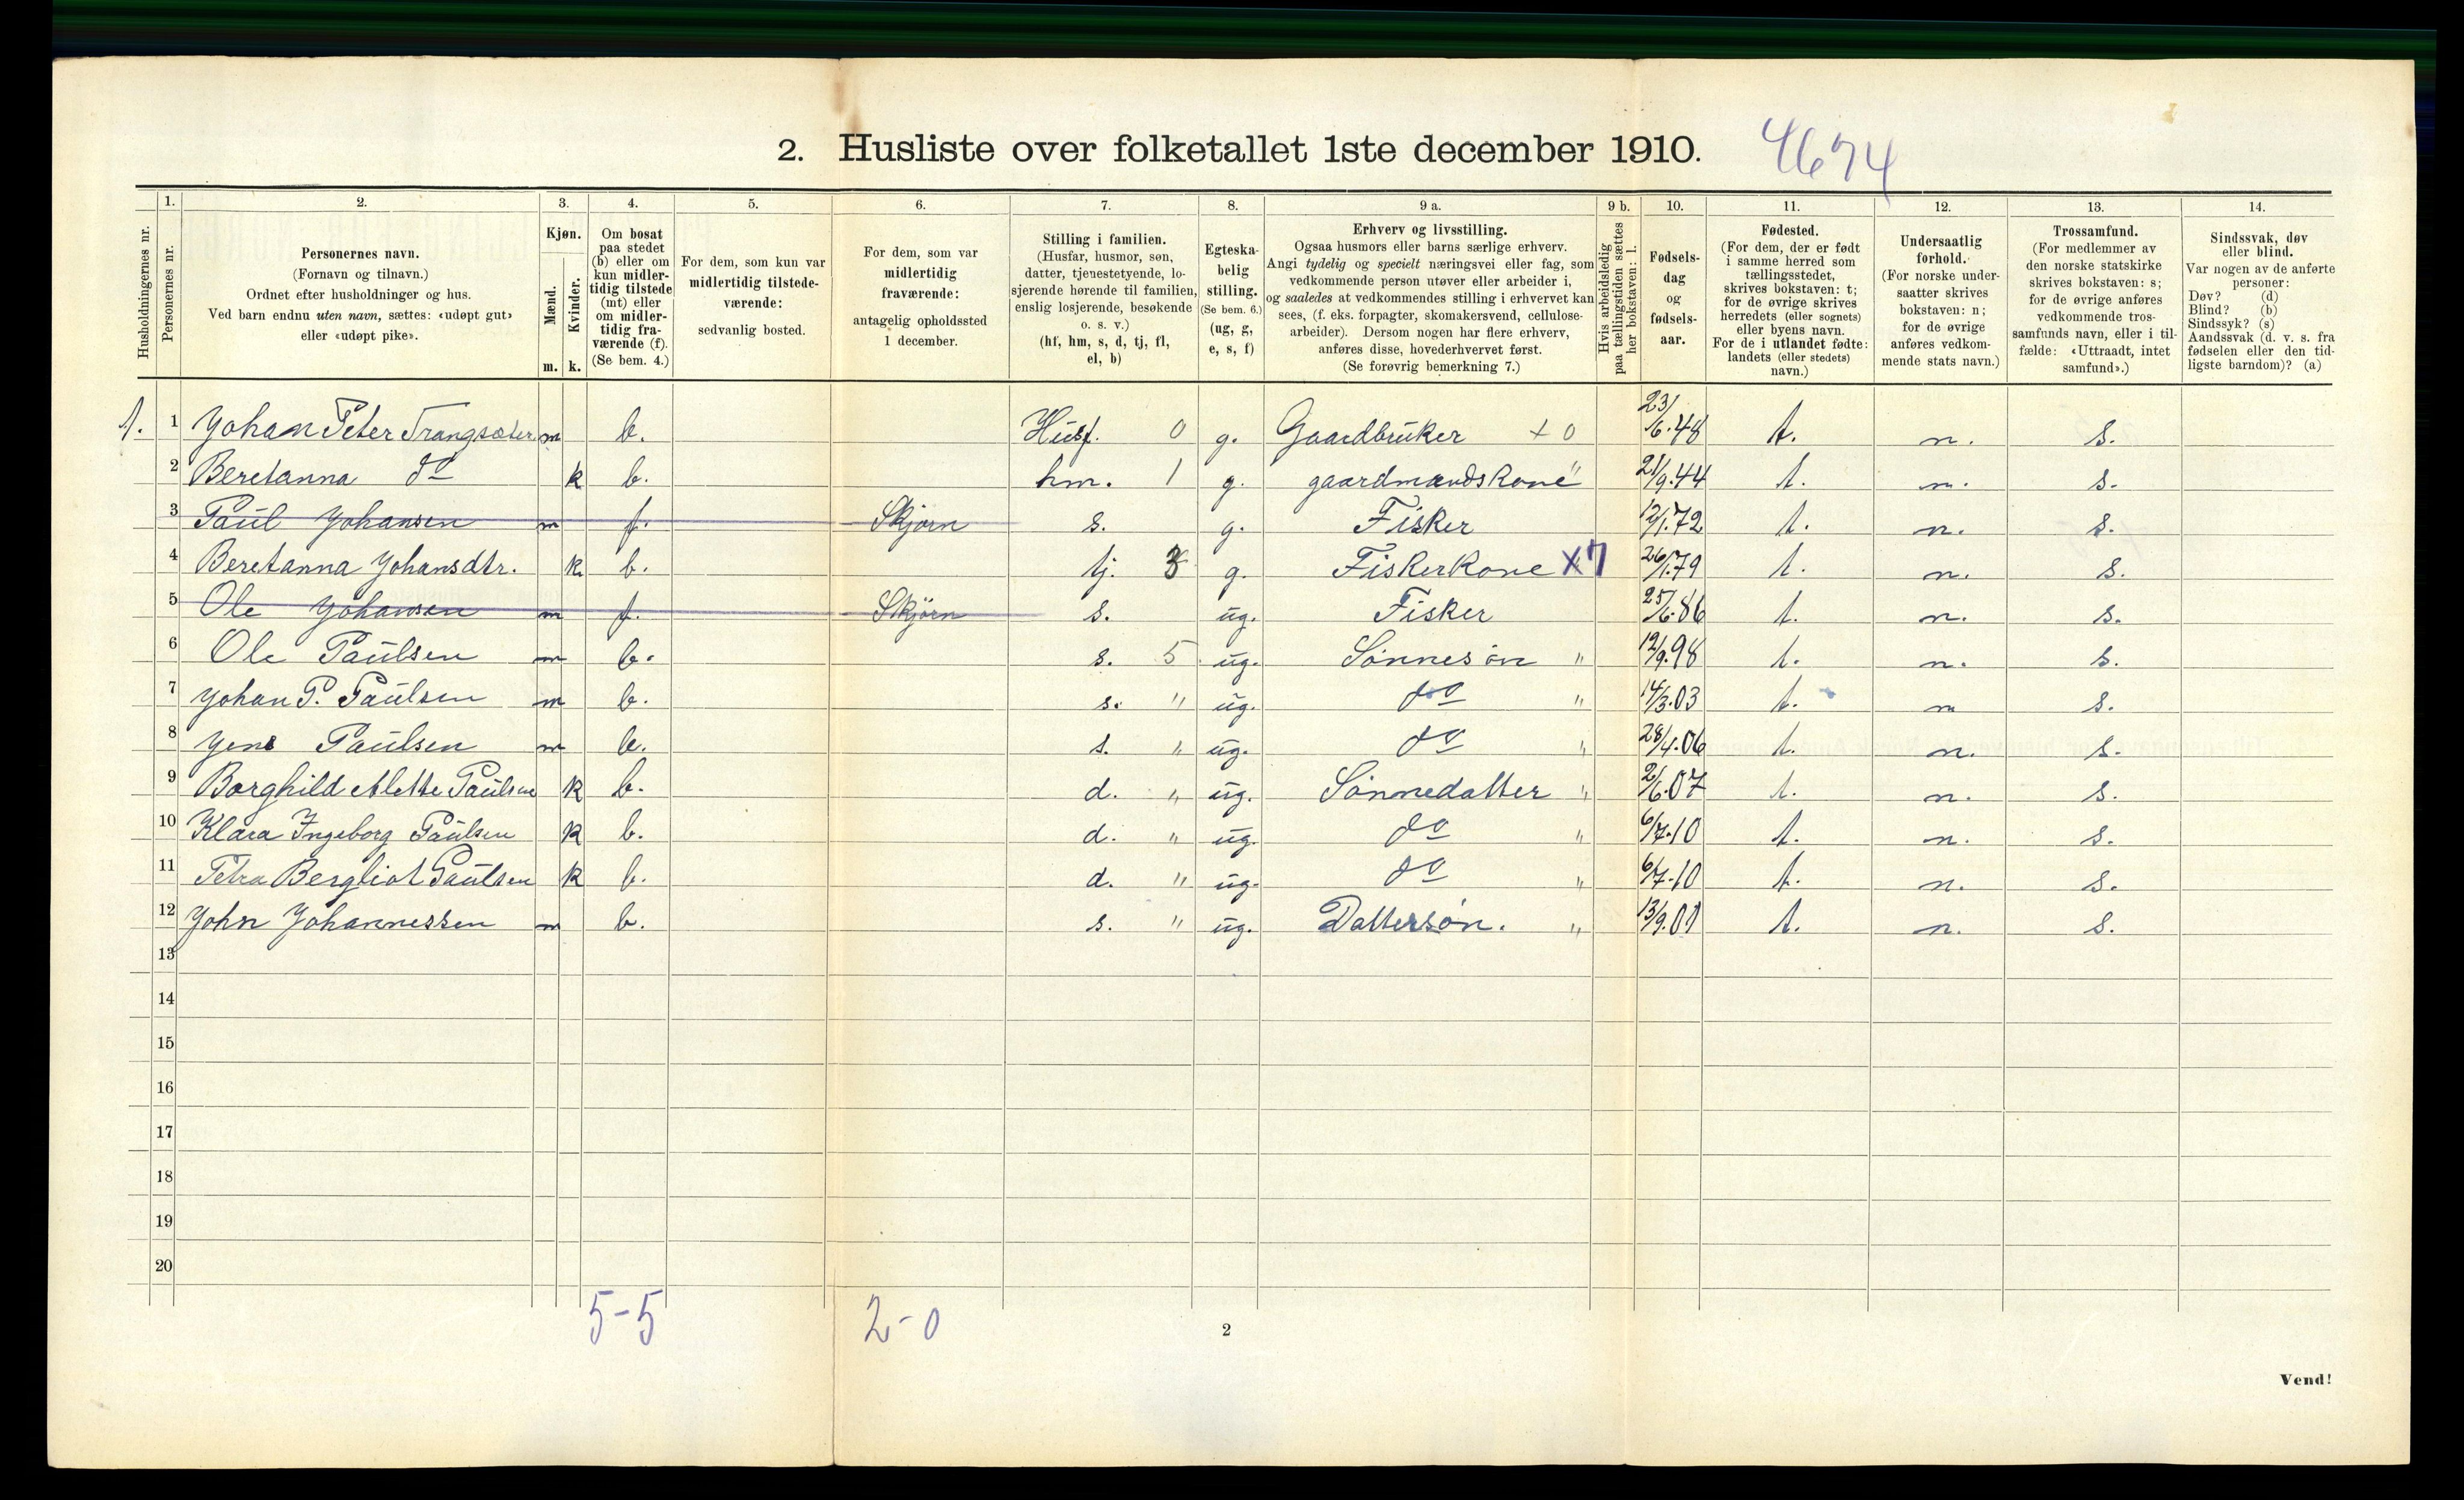 2. Husliste over folketallet 1ste december 1910. 4674
Husholdningernes nr.
1. Personernes nr.
2. Personernes navn.
(Fornavn og tilnavn.)
Ordnet efter husholdninger og hus.
Ved barn endnu uten navn, sættes: «udøpt gut»
eller «udøpt pike».
3. Kjøn.
Mænd. Kvinder.
m. k.
4. Om bosat
paa stedet
(b) eller om
kun midler-
tidig tilstede
(mt) eller
om midler-
tidig fra-
værende (f).
(Se bem. 4.)
5. For dem, som kun var
midlertidig tilstede-
værende:
sedvanlig bosted.
6. For dem, som var
midlertidig
fraværende:
antagelig opholdssted
1 december.
7. Stilling i familien.
(Husfar, husmor, søn,
datter, tjenestetyende, lo-
sjerende hørende til familien,
enslig losjerende, besøkende
o. s. v.)
(hf, hm, s, d, tj, fl,
el, b)
8. Egteska-
belig
stilling.
(Se bem. 6.)
(ug, g,
e, s, f)
9 a. Erhverv og livsstilling.
Ogsaa husmors eller barns særlige erhverv.
Angi tydelig og specielt næringsvei eller fag, som
vedkommende person utøver eller arbeider i,
og saaledes at vedkommendes stilling i erhvervet kan
sees, (f. eks. forpagter, skomakersvend, cellulose-
arbeider). Dersom nogen har flere erhverv,
anføres disse, hovederhvervet først.
(Se forøvrig bemerkning 7.)
9 b. Hvis arbeidsledig
paa tællingstiden sættes
her bokstaven: l.
10. Fødsels-
dag
og
fødsels-
aar.
11. Fødested.
(For dem, der er født
i samme herred som
tællingsstedet,
skrives bokstaven: t;
for de øvrige skrives
herredets (eller sognets)
eller byens navn.
For de i utlandet fødte:
landets (eller stedets)
navn.)
12. Undersaatlig
forhold.
(For norske under-
saatter skrives
bokstaven: n;
for de øvrige
anføres vedkom-
mende stats navn.)
13. Trossamfund.
(For medlemmer av
den norske statskirke
skrives bokstaven: s;
for de øvrige anføres
vedkommende tros-
samfunds navn, eller i til-
fælde: «Uttraadt, intet
samfund».)
14. Sindssvak, døv
eller blind.
Var nogen av de anførte
personer:
Døv? (d)
Blind? (b)
Sindssyk? (s)
Aandssvak (d. v. s. fra
fødselen eller den tid-
ligste barndom)? (a)
1. 1 Johan Peter Trangsæter m b. Husf. 0 g. Gaardbruker + 0 23/6.48 t. n. s.
2 Beretanna do k b. hm. 1 g. gaardmandskone " 21/9.44 t. n. s.
3 Paul Johansen m f. Skjørn s. g. Fisker 12/1.72 t. n. s.
4 Beretanna Johansdtr. k. b. tj. 3 g. Fiskerkone X7 26/1.79 t. n. s.
5 Ole Johansen m f. Skjørn s. ug. Fisker 25/6.86 t. n. s.
6 Ole Paulsen m b. s. 5 ug. Sønnesøn " 12/9.98 t. n. s.
7 Johan P. Paulsen m b. s. " ug. do " 14/3.03 t. n s.
8 Jens Paulsen m b. s. " ug. do " 28/4.06 t. n. s.
9 Borghild Alette Paulsen k b. d. " ug. Sønnedatter " 2/6.07 t. n. s.
10 Klara Ingeborg Paulsen k b. d. " ug. do " 6/7.10 t. n. s.
11 Petra Bergliot Paulsen k b. d. " ug. do " 6/7.10 t. n. s.
12 John Johannessen m b. s. " ug. Dattersøn. " 13/9.01 t. n. s.
13
14
15
16
17
18
19
20
5-5 2-0
2
Vend!